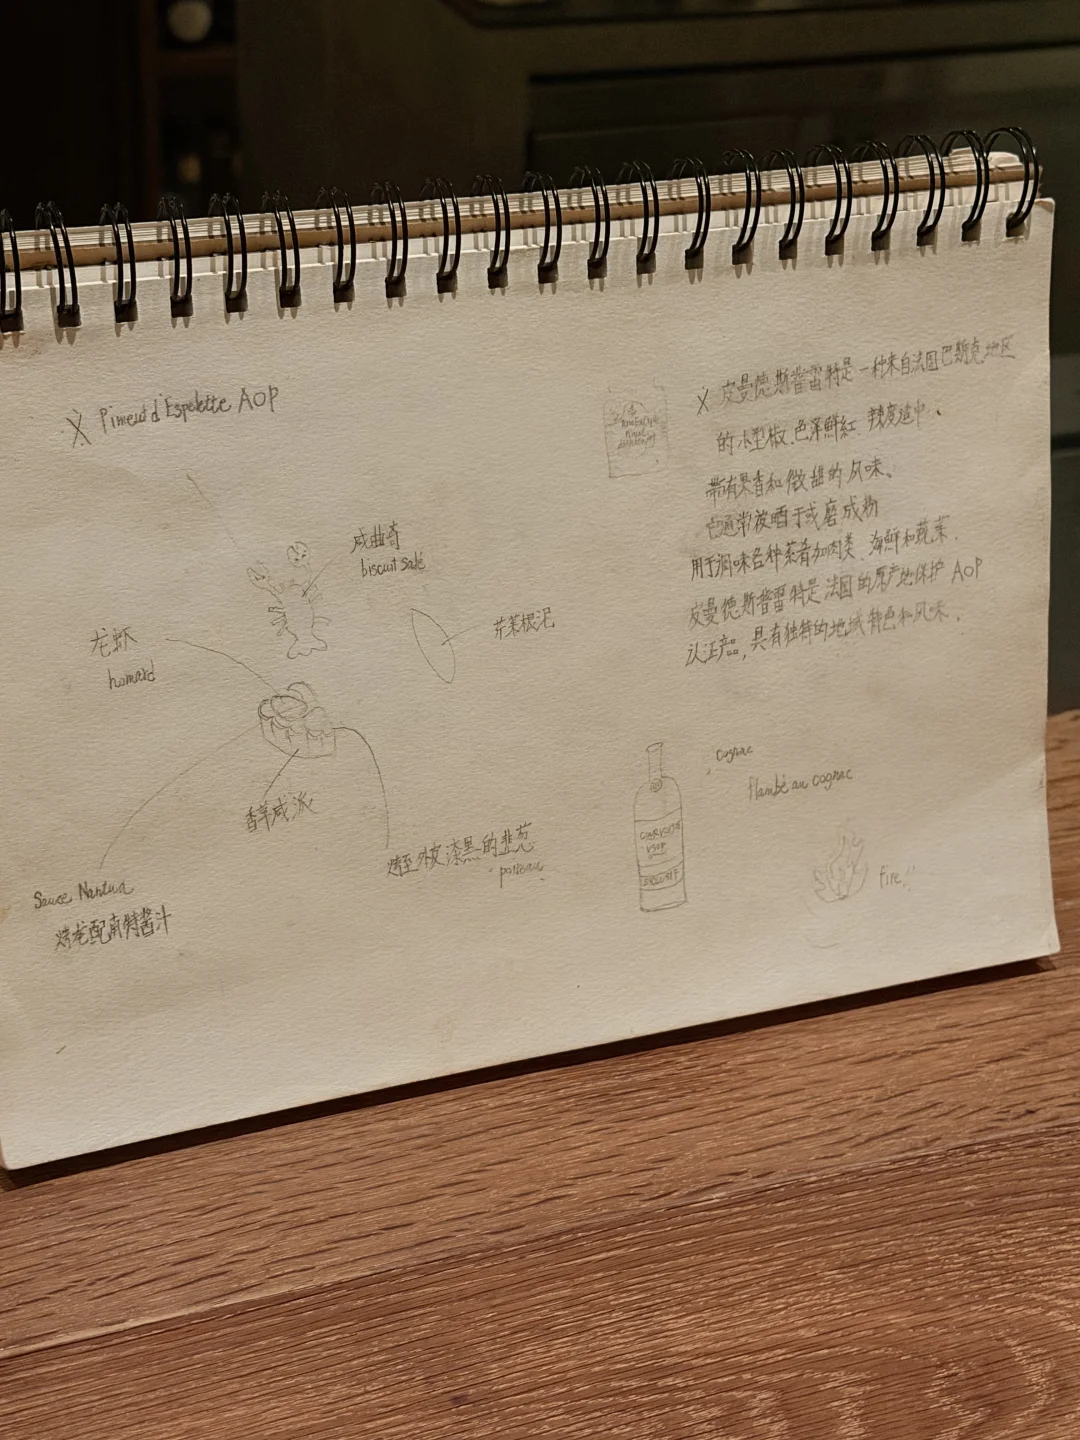 ※ Piment d'Espelette AOP
咸曲奇
biscuit salé
龙虾
homard
芹菜根泥
香草咸派
烤至外皮漆黑的韭葱
poireau
Sauce Nantua
烤龙配南特酱汁
※ 皮曼德斯普雷特是一种来自法国巴斯克地区
的小型椒、色泽鲜红、辣度适中、
带有果香和微甜的风味、
它通常被晒干或磨成粉
用于调味各种菜肴如肉类、海鲜和蔬菜、
皮曼德斯普雷特是法国的原产地保护 AOP
认证产品,具有独特的地域特色和风味、
cognac
flambé au cognac
VSOP
EXCLUSIF
fire!!